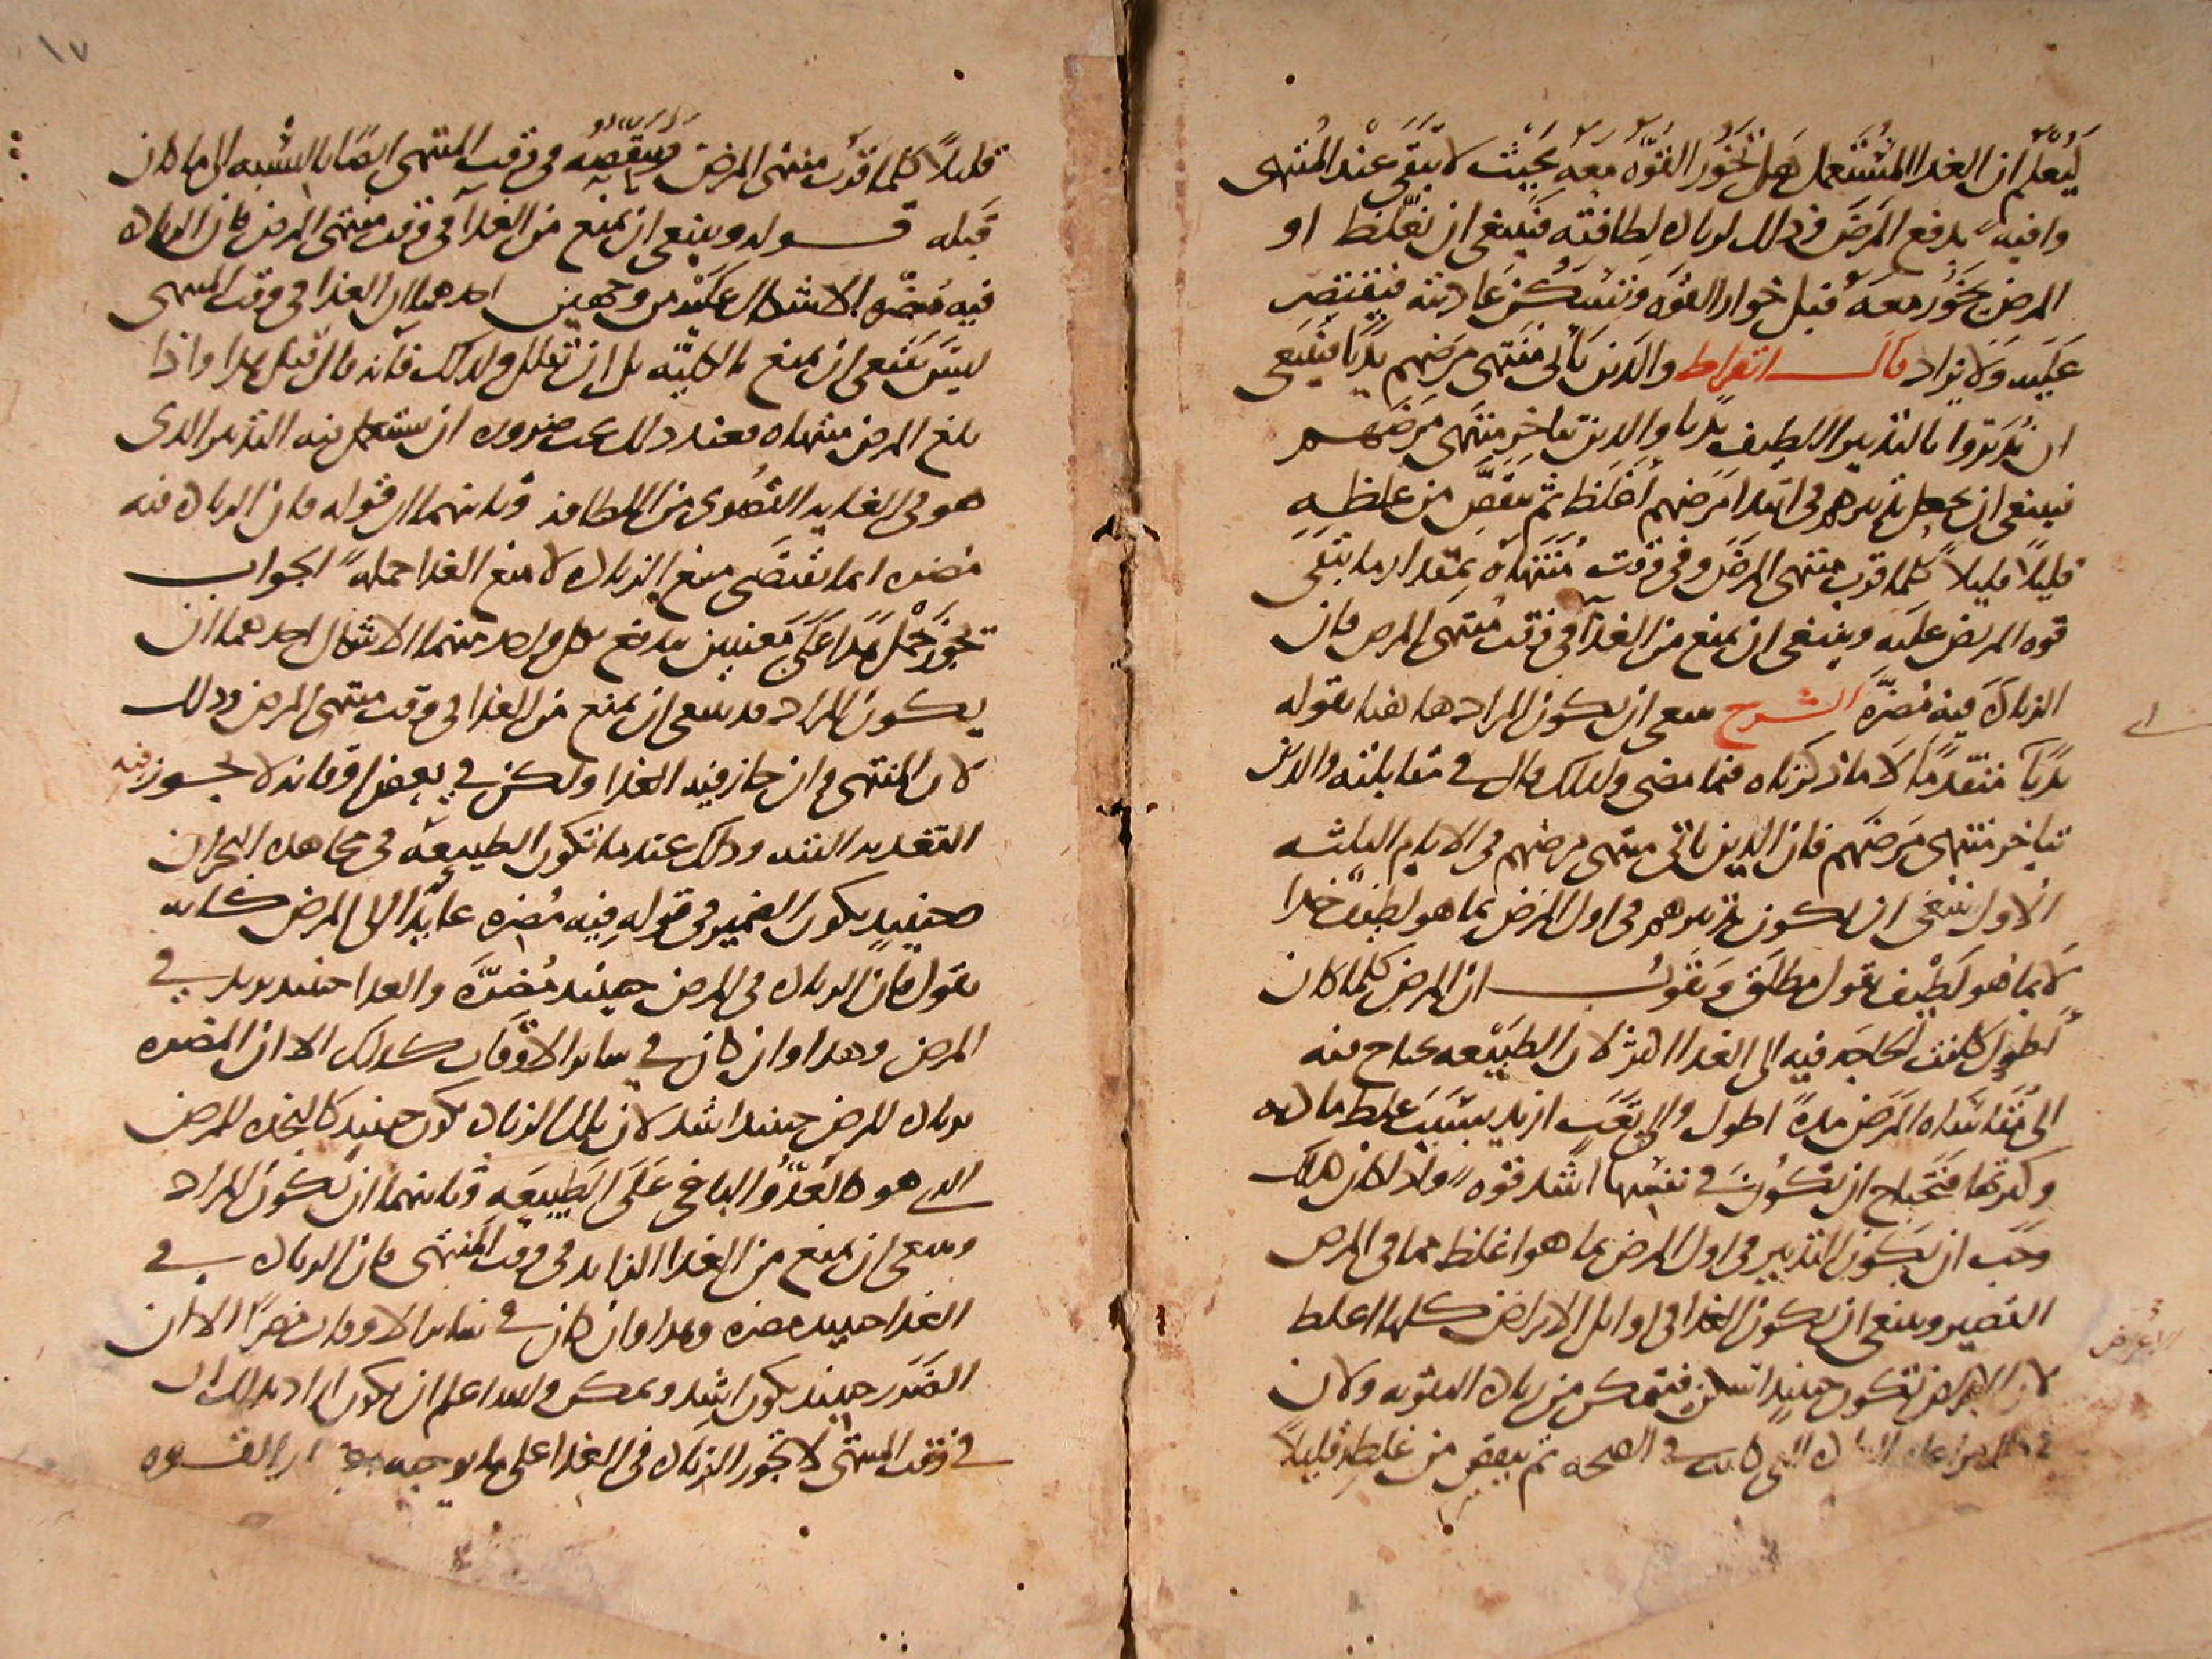 ليعلم ان الغذا المستعمل هل تخور القوه معه بحيث لا تبقى عند المنتهى
وافيه بدفع المرض وذلك لزيادة لطافته فينبغي ان نغلظ او
المرض يخور معه قبل خوار القوه وتسكن عاديته فيقتصر
عليه ولا يزاد قال ابقراط والذين يأتي منتهى مرضهم بديا فينبغي
ان يدبروا بالتدبير اللطيف بديا والذين يتاخر منتهى مرضهم
فينبغي ان يجعل تدبيرهم في ابتدا مرضهم اغلظ ثم ينقص من غلظه
قليلا قليلا كلما قرب منتهى المرض وفي وقت منتهاه بمقدار ما تبقى
قوه المريض عليه وينبغي ان يمنع من الغذا في وقت منتهى المرض فان
الزيادة فيه مضرة الشرح ينبغي ان يكون المراد هاهنا بقوله
بديا متقدما لا ما ذكرناه فيما مضى ولذلك قال في مقابلته والذين
يتاخر منتهى مرضهم فان الذين ياتي منتهى مرضهم في الايام الثلثه
الاول ينبغي ان يكون تدبيرهم في اول المرض بما هو لطيف جدا
لا بما هو لطيف بقول مطلق ونقول ان المرض كلما كان
اطول كانت الحاجه فيه الى الغذا اكثر لان الطبيعه تحتاج فيه
الى مقاساه المرض مدة اطول والى تعب ازيد بسبب غلظ مادته
وكثرتها فتحتاج ان تكون في نفسها اشد قوه واذا كان كذلك
وجب ان يكون التدبير في اول المرض بما هو اغلظ مما في المرض
القصير وينبغي ان يكون الغذا في اوايل الامراض كلها اغلظ
لان الاعراض تكون حينيذ اسكن فنتمكن من زيادة التقويه ولان
العادة التي كانت في الصحه ثم ينقص من غلظه قليلا
الاعراض
١٧
قليلا كلما قرب منتهى المرض وينقصه في وقت المنتهى ايضا بالنسبه الى ما كان
قبله قوله وينبغي ان يمنع من الغذا في وقت منتهى المرض فان الزيادة
فيه مضره الاشكال عليه من وجهين احدهما ان الغذا في وقت المنتهى
ليس ينبغي ان يمنع بالكليه بل ان يقلل ولذلك فانه قال قبل هذا واذا
بلغ المرض منتهاه فعند ذلك يجب ضروره ان يستعمل فيه التدبير الذي
هو في الغايه القصوى من اللطافه وثانيهما ان قوله فان الزيادة فيه
مضره انما يقتضى منع الزيادة لا منع الغذا جملة الجواب
يجوز حمل هذا على معنيين يندفع بكل واحد منهما الاشكال احدهما ان
يكون المراد قد ينبغي ان يمنع من الغذا في وقت منتهى المرض وذلك
لان المنتهى وان جاز فيه الغذا ولكن في بعض اوقاته لا يجوز فيه
التغذيه البته وذلك عندما تكون الطبيعه في مجاهده البحران
وحينيذ يكون الضمير في قوله فيه مضره عايدا الى المرض كانه
يقول فان الزيادة في المرض حينيذ مضرة والغذا حينيذ يزيد في
المرض وهذا وان كان في ساير الاوقات كذلك الا ان المضره
بزيادة المرض حينيذ اشد لان تلك الزيادة تكون حينيذ كالنجده للمرض
الذي هو كالعدو الباغي على الطبيعه وثانيهما ان يكون المراد
وينبغي ان يمنع من الغذا الزايد في وقت المنتهى فان الزيادة في
الغذا حينيذ مضره وهذا وان كان في ساير الاوقات مضرا الا ان
الضرر حينيذ يكون اشد ويمكن والله اعلم ان يكون اراد بذلك ان
في وقت المنتهى لا تجوز الزيادة في الغذا على ما يوجبه القوه